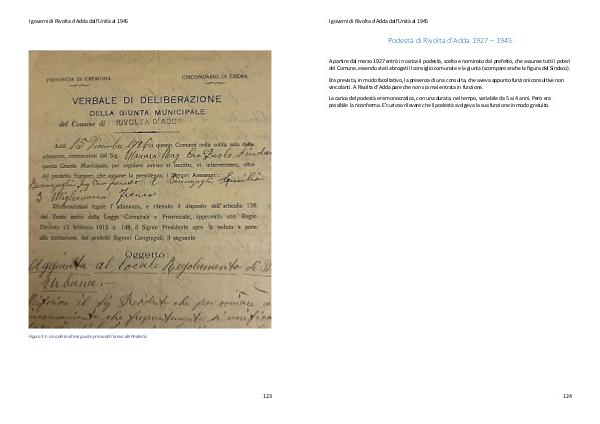 I governi di Rivolta d'Adda dall'Unità al 1945
PROVINCIA DI CREMONA
CIRCONDARIO DI CREMA
VERBALE DI DELIBERAZIONE
DELLA GIUNTA MUNICIPALE
del Comune di RIVOLTA D'ADDA
15 Dicembre 1926 in questo Comune nella solita sala delle
adunanze, convocatasi dal Sig. Manara Rag. Cav. Paolo Sindaco
questa Giunta Municipale, per regolare avviso in iscritto, vi intervennero, oltre
del predetto Signore, che assume la presidenza, i Signori Assessori:
3 Migliavacca Franco
Riconosciutasi legale l'adunanza, e ritenuto il disposto dell'articolo 138
del Testo unico della Legge Comunale e Provinciale, approvato con Regio
Decreto 12 febbraio 1915 n. 148, il Signor Presidente apre la seduta e pone
alla trattazione, dai predetti Signori Congregati, il seguente
Oggetto:
Aggiunta al locale Regolamento di
Urbana.
Riferisce il Sig. Presidente che per ovviare a
che frequentemente si verifica
Figura 13 - Una delle ultime giunte prima dell'arrivo del Podestà
123
I governi di Rivolta d'Adda dall'Unità al 1945
Podestà di Rivolta d'Adda 1927 – 1945
A partire dal marzo 1927 entrò in carica il podestà, scelto e nominato dal prefetto, che assunse tutti i poteri
del Comune, essendo stati abrogati il consiglio comunale e la giunta (scompare anche la figura del Sindaco).
Era prevista, in modo facoltativo, la presenza di una consulta, che aveva appunto funzioni consultive non
vincolanti. A Rivolta d'Adda pare che non sia mai entrata in funzione.
La carica del podestà era monocratica, con una durata, nel tempo, variabile da 5 ai 4 anni. Però era
possibile la riconferma. E' curioso rilevare che il podestà svolgeva la sua funzione in modo gratuito.
124